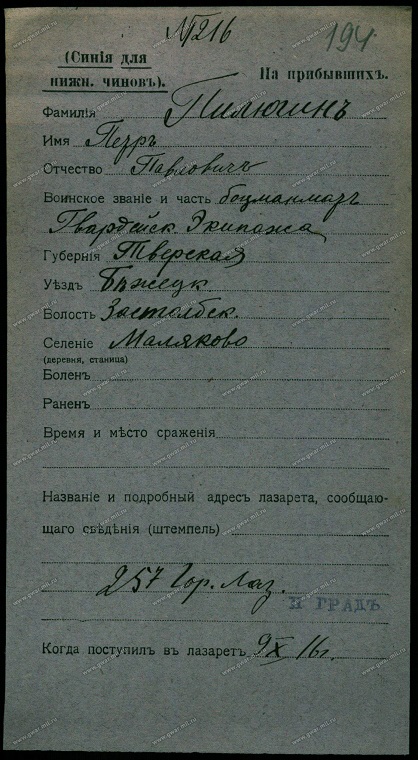 №216
194
(Синія для
нижн. чиновъ).
На прибывшихъ.
Фамилія Пилюгинъ
Имя Петръ
Отчество Павловичъ
Воинское званіе и часть боцманматъ
Гвардейск. Экипажа
Губернія Тверская
Уѣздъ Бѣжецк.
Волость Застолбск.
Селеніе Маляково
(деревня, станица)
Боленъ
Раненъ
Время и мѣсто сраженія
Названіе и подробный адресъ лазарета, сообщаю-
щаго свѣдѣнія (штемпель)
257 Гор. Лаз.
П ГРАДЪ
Когда поступилъ въ лазаретъ 9 X 16 г.